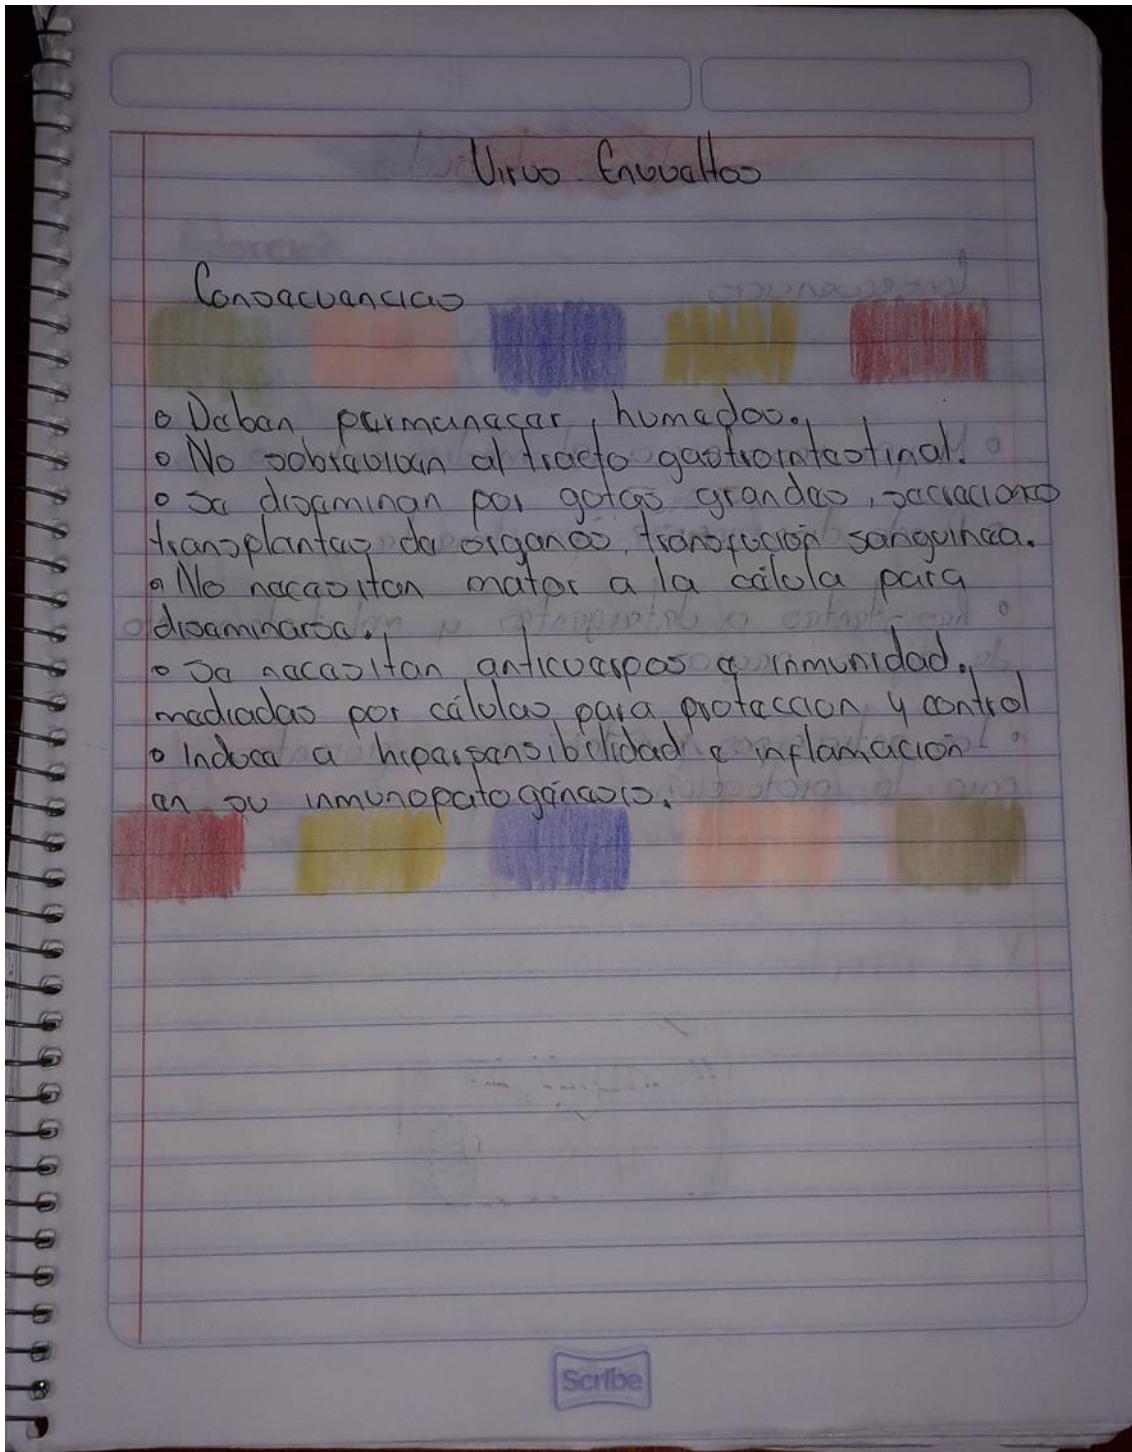 Virus Envueltos
Consecuencias
• Deben permanecer humedos.
• No sobreviven al tracto gastrointestinal.
• Se diseminan por gotas grandes, secreciones
transplantes de organos, transfución sanguinea.
• No necesitan matar a la célula para
diseminarse.
• Se necesitan anticuerpos e inmunidad.
mediadas por células para protección y control
• Induce a hipersensibilidad e inflamación
en su inmunopatogénesis.
Scribe